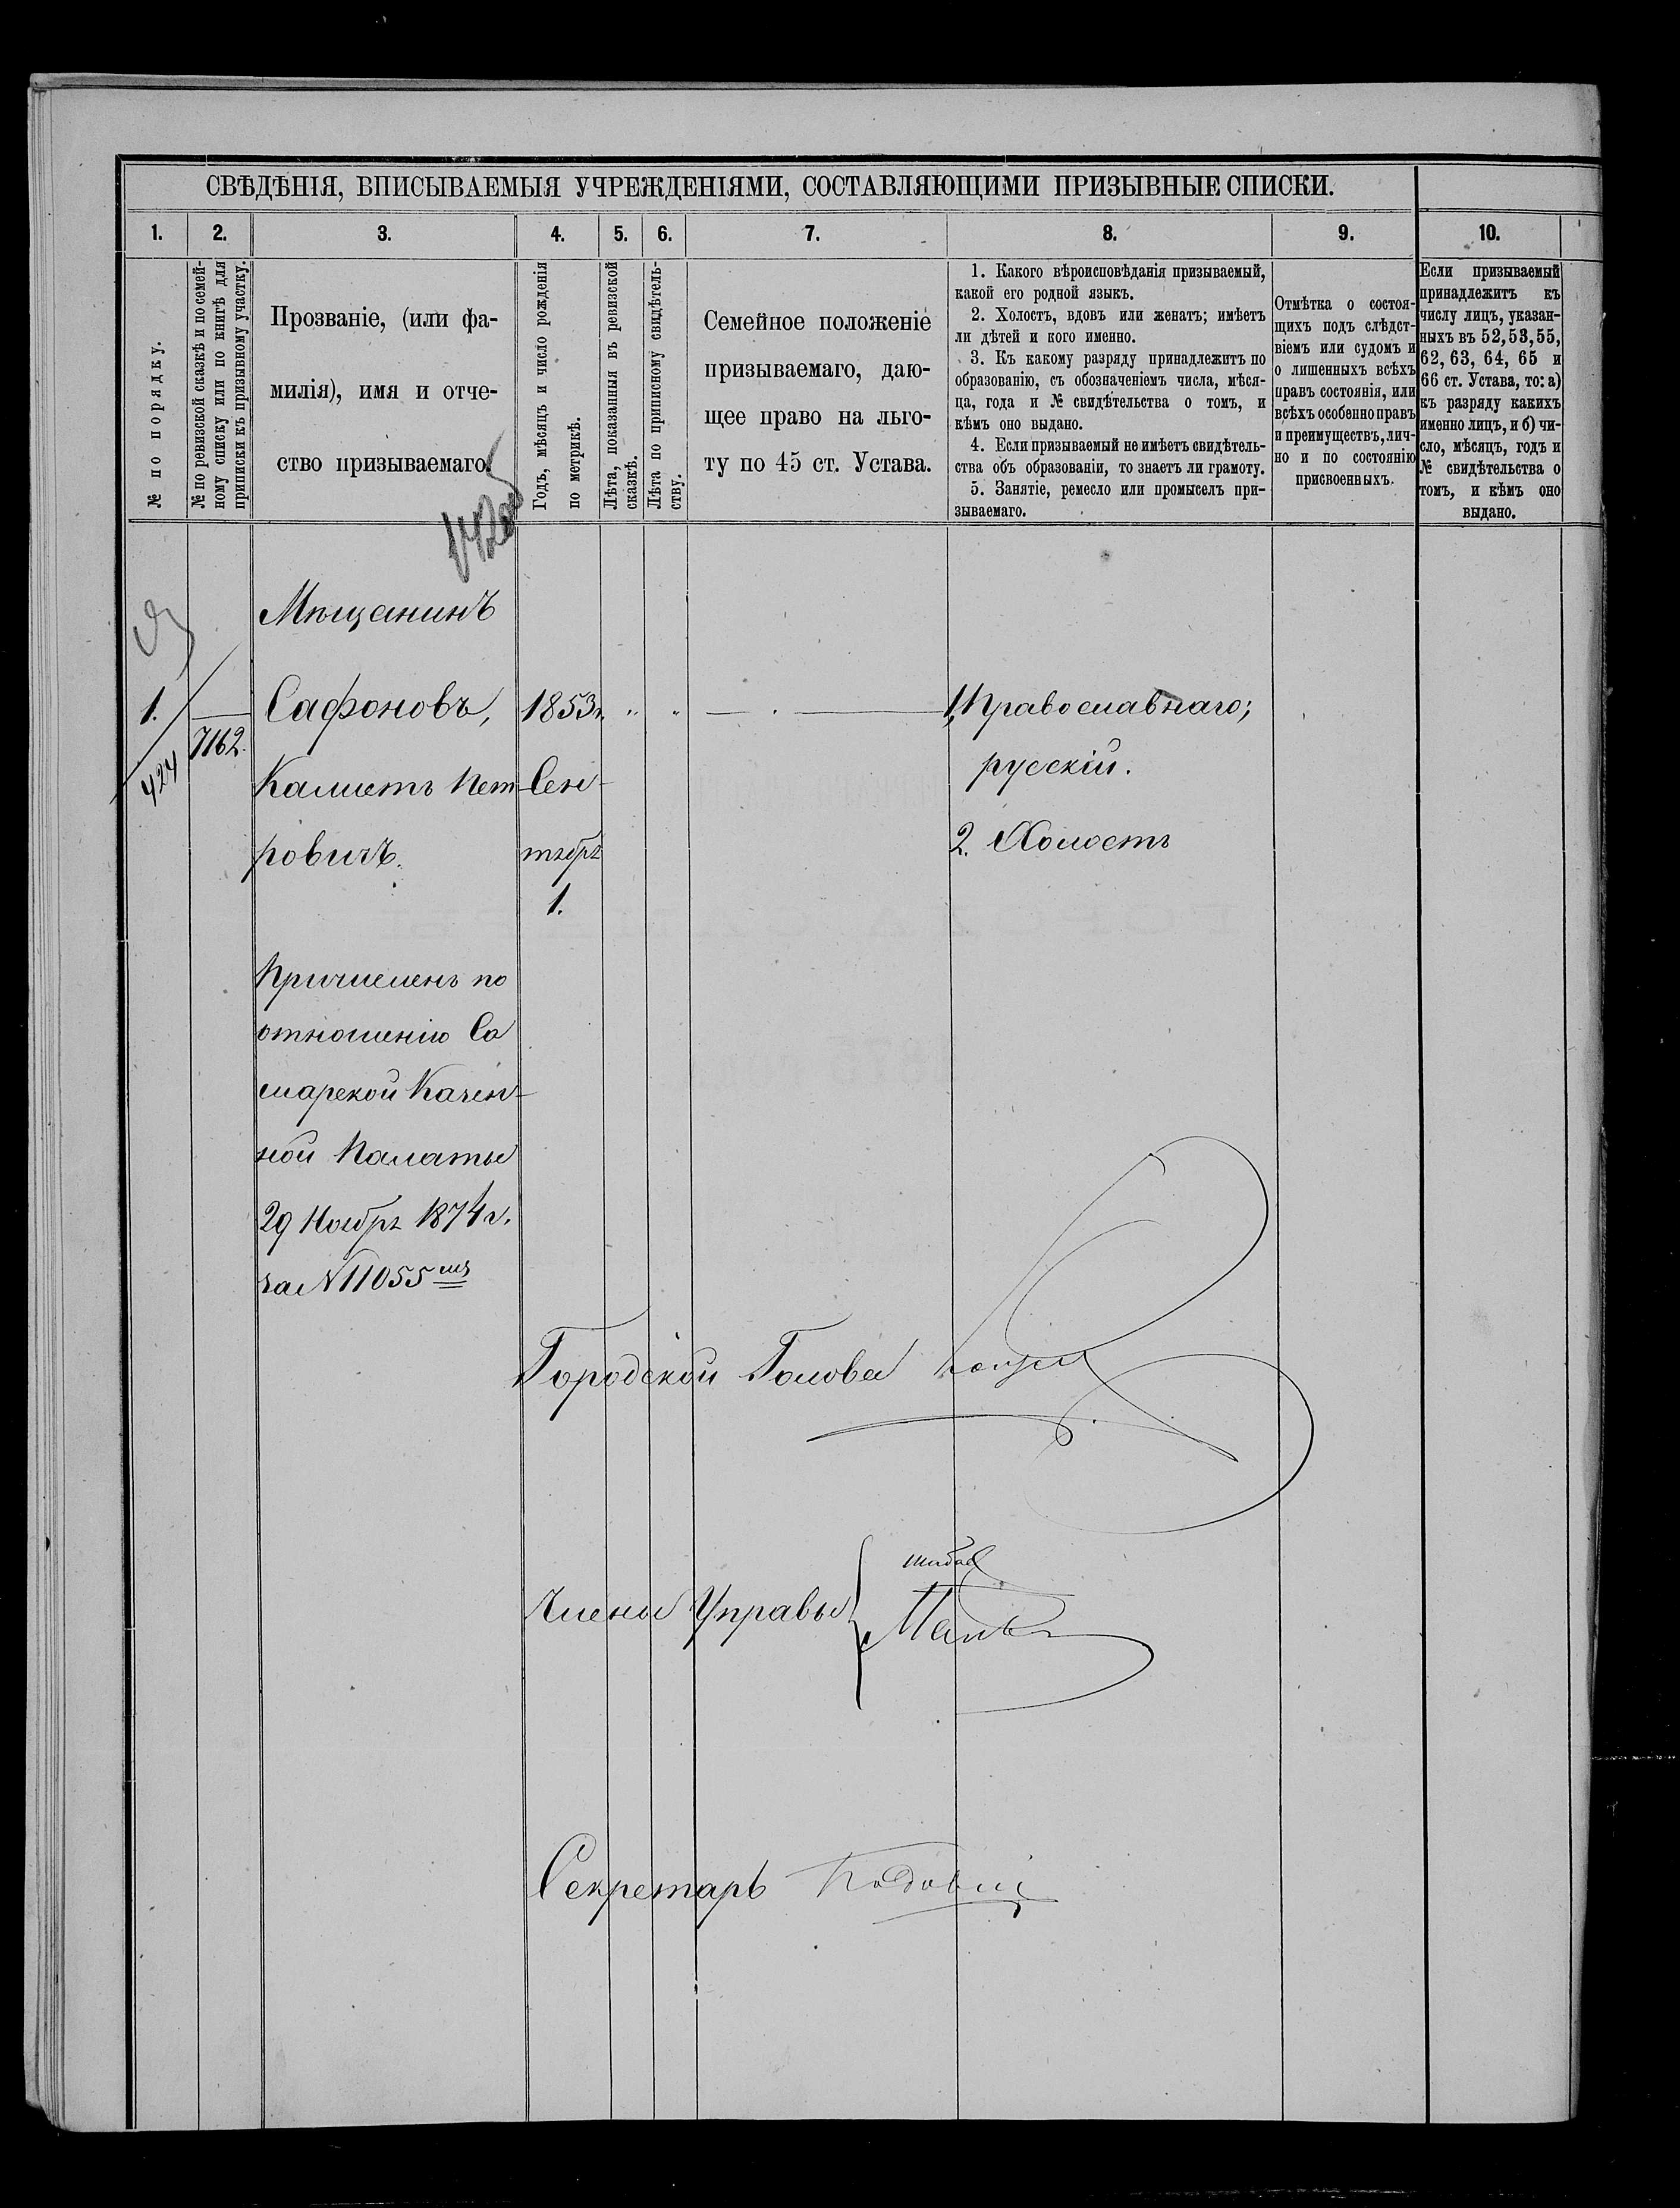 СВѢДѢНІЯ, ВПИСЫВАЕМЫЯ УЧРЕЖДЕНІЯМИ, СОСТАВЛЯЮЩИМИ ПРИЗЫВНЫЕ СПИСКИ.
1. 2. 3. 4. 5. 6. 7. 8. 9. 10.
№ по порядку.
№ по ревизской сказкѣ и по семей-
ному списку или по книгѣ для
приписки къ призывному участку.
Прозваніе, (или фа-
милія), имя и отче-
ство призываемаго.
Годъ, мѣсяцъ и число рожденія
по метрикѣ.
Лѣта, показанныя въ ревизской
сказкѣ.
Лѣта по приписному свидѣтель-
ству.
Семейное положеніе
призываемаго, даю-
щее право на льго-
ту по 45 ст. Устава.
1. Какого вѣроисповѣданія призываемый,
какой его родной языкъ.
2. Холостъ, вдовъ или женатъ; имѣетъ
ли дѣтей и кого именно.
3. Къ какому разряду принадлежитъ по
образованію, съ обозначеніемъ числа, мѣся-
ца, года и № свидѣтельства о томъ, и
кѣмъ оно выдано.
4. Если призываемый не имѣетъ свидѣтель-
ства объ образованіи, то знаетъ ли грамоту.
5. Занятіе, ремесло или промыселъ при-
зываемаго.
Отмѣтка о состоя-
щихъ подъ слѣдст-
віемъ или судомъ и
о лишенныхъ всѣхъ
правъ состоянія, или
всѣхъ особенно правъ
и преимуществъ, лич-
но и по состоянію
присвоенныхъ.
Если призываемый
принадлежитъ къ
числу лицъ, указан-
ныхъ въ 52, 53, 55,
62, 63, 64, 65 и
66 ст. Устава, то: а)
къ разряду какихъ
именно лицъ, и б) чи-
сло, мѣсяцъ, годъ и
№ свидѣтельства о
томъ, и кѣмъ оно
выдано.
Мѣщанинъ
1. — Сафоновъ, 1853 г. „ „ — 1, Православнаго;
424 7162.
русскій.
Калистъ Пет- Сен-
ровичъ. тября
1.
2. Холостъ
Причисленъ по
отношенію Са
марской Казен-
ной Палаты
29 Ноября 1874 г.
за N 11055
Городской Голова
Члены Управы
Секретарь